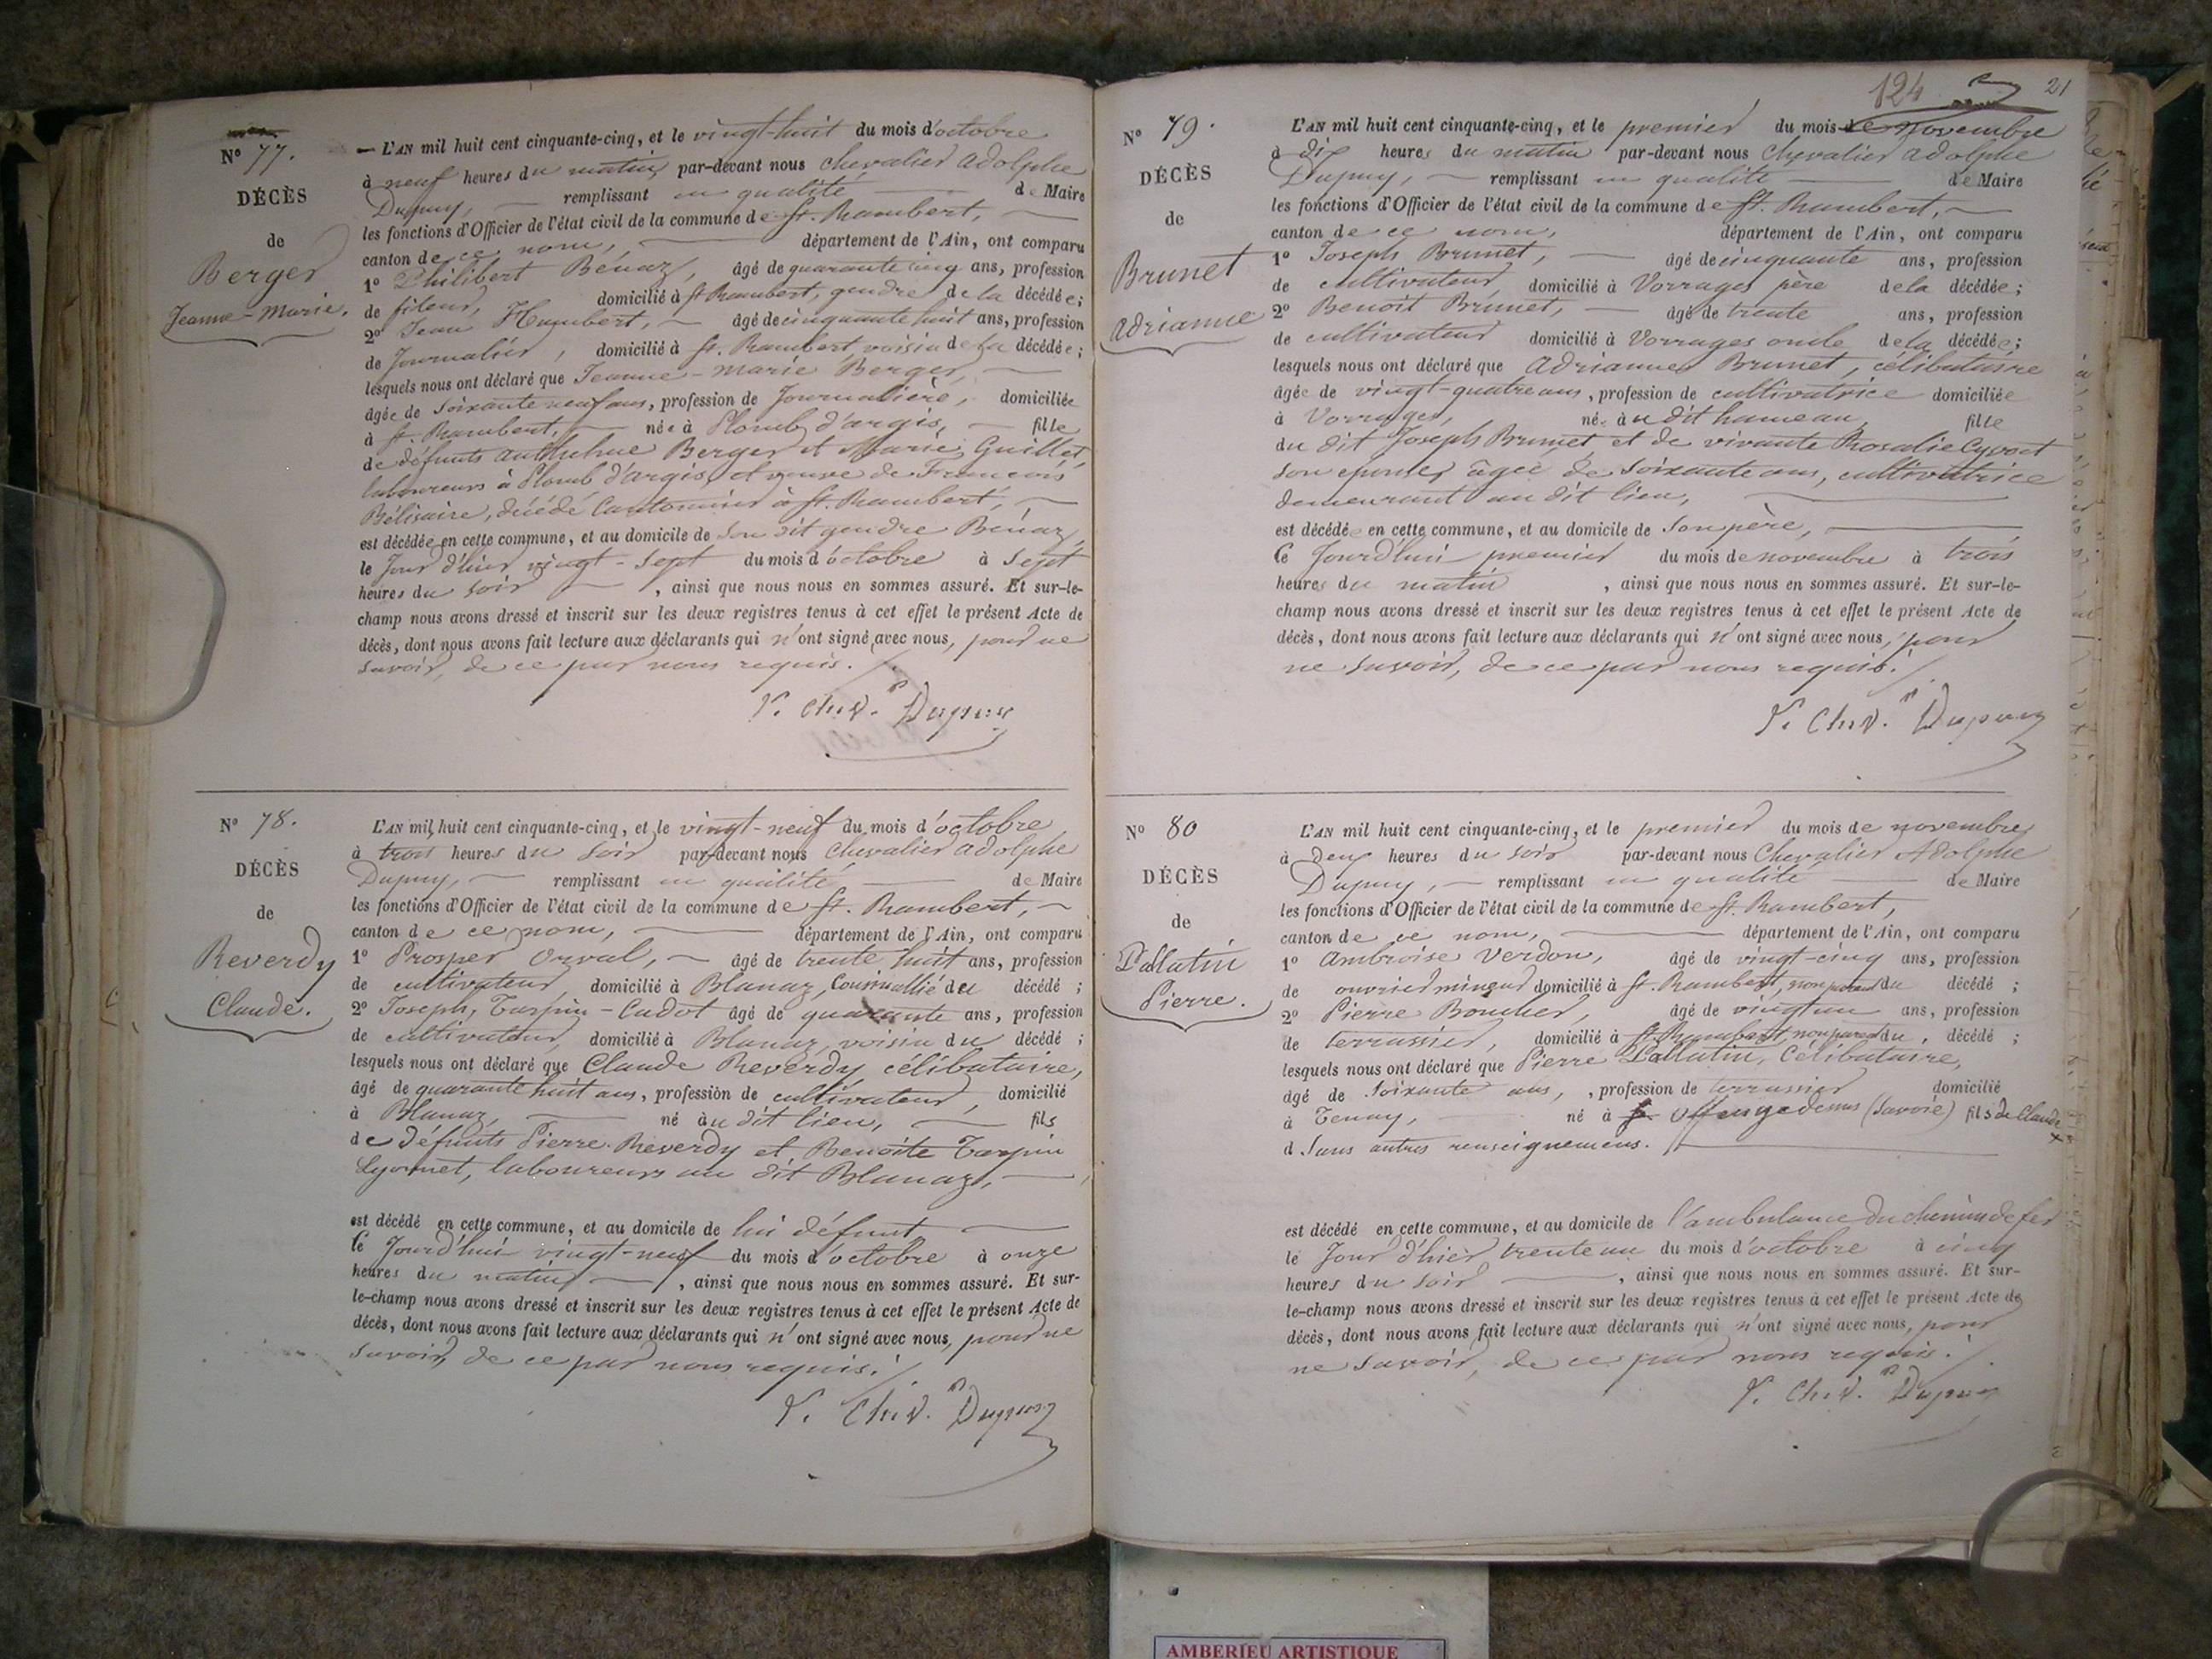 N° 77.
DÉCÈS
de
Berger
Jeanne-Marie.
L'AN mil huit cent cinquante-cinq, et le vingt-huit du mois d'octobre
à neuf heures du matin par-devant nous Chevalier Adolphe
Dupuy, remplissant en qualité de Maire
les fonctions d'Officier de l'état civil de la commune de St. Rambert,
canton de ce nom, département de l'Ain, ont comparu
1° Philibert Bénaz, âgé de quarante cinq ans, profession
de fileur, domicilié à St Rambert, gendre de la décédée;
2° Jean Humbert, âgé de cinquante huit ans, profession
de Journalier, domicilié à St. Rambert voisin de la décédée;
lesquels nous ont déclaré que Jeanne-Marie Berger,
âgée de soixante neuf ans, profession de Journalière, domiciliée
à St. Rambert, née à Plomb d'argis, fille
de défunts Anthelme Berger et Marie Guillet,
laboureurs à Plomb d'argis, et veuve de François
Bélisaire, décédé Cantonnier à St. Rambert,
est décédée en cette commune, et au domicile de son dit gendre Bénaz,
le Jour d'hier vingt-sept du mois d'octobre à sept
heures du soir, ainsi que nous nous en sommes assuré. Et sur-le-
champ nous avons dressé et inscrit sur les deux registres tenus à cet effet le présent Acte de
décès, dont nous avons fait lecture aux déclarants qui n'ont signé avec nous, pour ne
savoir, de ce par nous requis.
Chev. Dupuy
N° 78.
DÉCÈS
de
Reverdy
Claude.
L'AN mil huit cent cinquante-cinq, et le vingt-neuf du mois d'octobre
à trois heures du soir par-devant nous Chevalier Adolphe
Dupuy, remplissant en qualité de Maire
les fonctions d'Officier de l'état civil de la commune de St. Rambert,
canton de ce nom, département de l'Ain, ont comparu
1° Prosper Orval, âgé de trente huit ans, profession
de cultivateur, domicilié à Blanaz, du décédé;
2° Joseph, Tarpin-Cadot âgé de quarante ans, profession
de cultivateur, domicilié à Blanaz, voisin du décédé;
lesquels nous ont déclaré que Claude Reverdy célibataire,
âgé de quarante huit ans, profession de cultivateur, domicilié
à Blanaz, né au dit lieu, fils
de défunts Pierre Reverdy et Benoite Tarpin
Lyonnet, laboureurs au dit Blanaz,
est décédé en cette commune, et au domicile de lui défunt
le Jourd'hui vingt-neuf du mois d'octobre à onze
heures du matin, ainsi que nous nous en sommes assuré. Et sur-
le-champ nous avons dressé et inscrit sur les deux registres tenus à cet effet le présent Acte de
décès, dont nous avons fait lecture aux déclarants qui n'ont signé avec nous, pour ne
savoir, de ce par nous requis.
Chev. Dupuy
124 21
N° 79.
DÉCÈS
de
Brunet
Adrianne
L'AN mil huit cent cinquante-cinq, et le premier du mois de novembre
à dix heures du matin par-devant nous Chevalier Adolphe
Dupuy, remplissant en qualité de Maire
les fonctions d'Officier de l'état civil de la commune de St. Rambert,
canton de ce nom, département de l'Ain, ont comparu
1° Joseph Brunet, âgé de cinquante ans, profession
de cultivateur, domicilié à Vorrages père de la décédée;
2° Benoit Brunet, âgé de trente ans, profession
de cultivateur domicilié à Vorrages oncle de la décédée;
lesquels nous ont déclaré que Adrianne Brunet, célibataire
âgée de vingt-quatre ans, profession de cultivatrice domiciliée
à Vorrages, née au dit hameau, fille
du dit Joseph Brunet et de vivante Rosalie Cyvoct
son epouse, âgée de soixante ans, cultivatrice
demeurant au dit lieu,
est décédée en cette commune, et au domicile de son père,
le Jourd'hui premier du mois de novembre à trois
heures du matin, ainsi que nous nous en sommes assuré. Et sur-le-
champ nous avons dressé et inscrit sur les deux registres tenus à cet effet le présent Acte de
décès, dont nous avons fait lecture aux déclarants qui n'ont signé avec nous, pour
ne savoir, de ce par nous requis.
Chev. Dupuy
N° 80
DÉCÈS
de
Pallatin
Pierre.
L'AN mil huit cent cinquante-cinq, et le premier du mois de novembre
à Deux heures du soir par-devant nous Chevalier Adolphe
Dupuy, remplissant en qualité de Maire
les fonctions d'Officier de l'état civil de la commune de St. Rambert,
canton de ce nom, département de l'Ain, ont comparu
1° Ambroise Verdon, âgé de vingt-cinq ans, profession
de ouvrier mineur domicilié à St. Rambert, non parent du décédé;
2° Pierre Boucher, âgé de vingt un ans, profession
de terrassier, domicilié à St. Rambert, non parent du décédé;
lesquels nous ont déclaré que Pierre Pallatin, Célibataire,
âgé de soixante ans, profession de terrassier domicilié
à Tenay, né à dessus (Savoie) fils de Claude
d Sans autres renseignemens.
est décédé en cette commune, et au domicile de l'ambulance du chemin de fer
le Jour d'hier trente un du mois d'octobre à cinq
heures du soir, ainsi que nous nous en sommes assuré. Et sur-
le-champ nous avons dressé et inscrit sur les deux registres tenus à cet effet le présent Acte de
décès, dont nous avons fait lecture aux déclarants qui n'ont signé avec nous, pour
ne savoir, de ce par nous requis.
Chev. Dupuy
AMBERIEU ARTISTIQUE